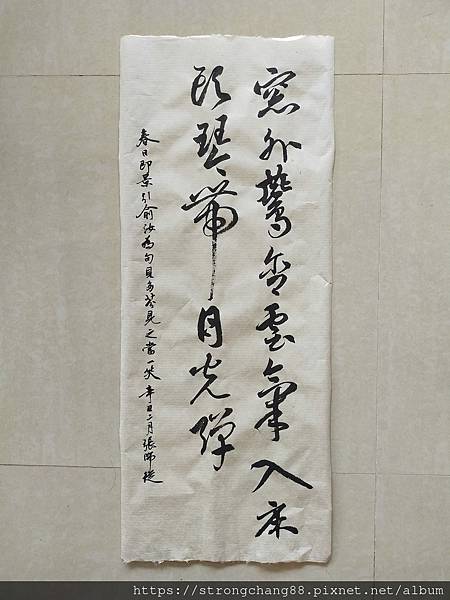 窓外鶯含雲氣入床
頭琴帶月光彈
春日即景引俞汝為句貝多芬見之當一笑 辛丑二月張師從
https://strongchang88.pixnet.net/album